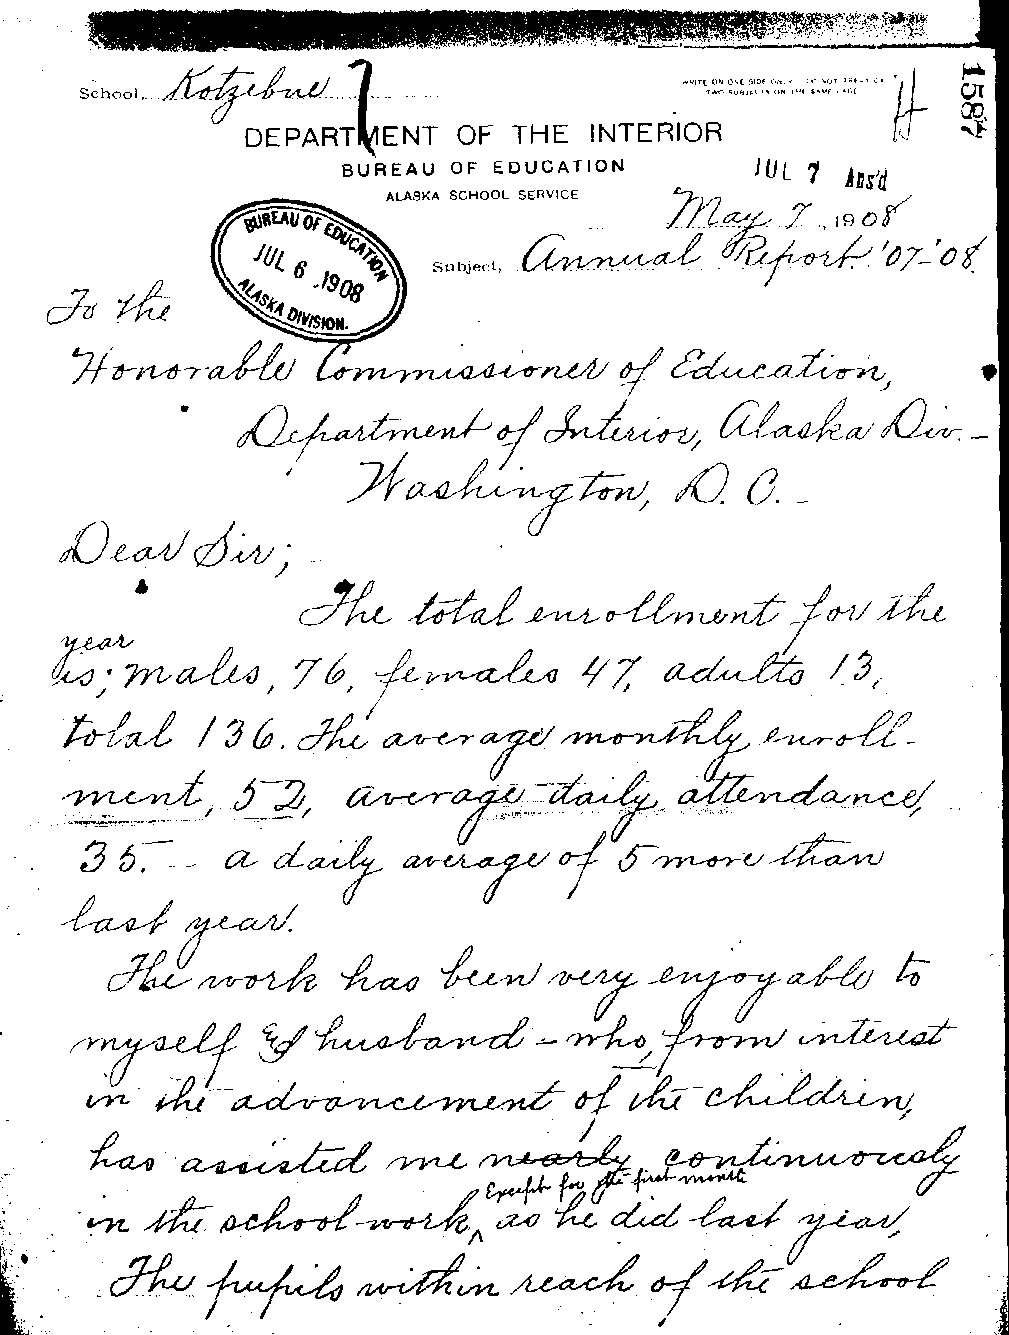 School, Kotzebue 7
WRITE ON ONE SIDE ONLY. DO NOT TREAT OF
TWO SUBJECTS ON THE SAME PAGE
H
1587
DEPARTMENT OF THE INTERIOR
BUREAU OF EDUCATION
ALASKA SCHOOL SERVICE
JUL 7 Ans'd
May 7, 1908
BUREAU OF EDUCATION
JUL 6 1908
ALASKA DIVISION.
Subject, Annual Report '07-'08.
To the
Honorable Commissioner of Education,
Department of Interior, Alaska Div.-
Washington, D. C.-
Dear Sir;
The total enrollment for the
year
is; males, 76, females 47, adults 13,
total 136. The average monthly enroll-
ment, 52, average daily attendance,
35. - a daily average of 5 more than
last year.
The work has been very enjoyable to
myself & husband - who, from interest
in the advancement of the children,
has assisted me nearly continuously
Except for the first month
in the school-work, as he did last year,
The pupils within reach of the school